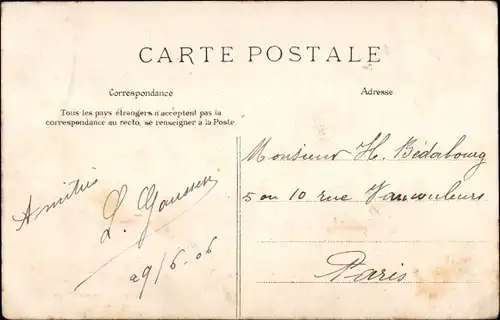 CARTE POSTALE
Correspondance
Tous les pays étrangers n'acceptent pas la
correspondance au recto, se renseigner à la Poste.
Adresse
Amitiés
L. Gaussen
29/6.06
Monsieur H. Bédabourg
5 ou 10 rue Vaucouleurs
Paris